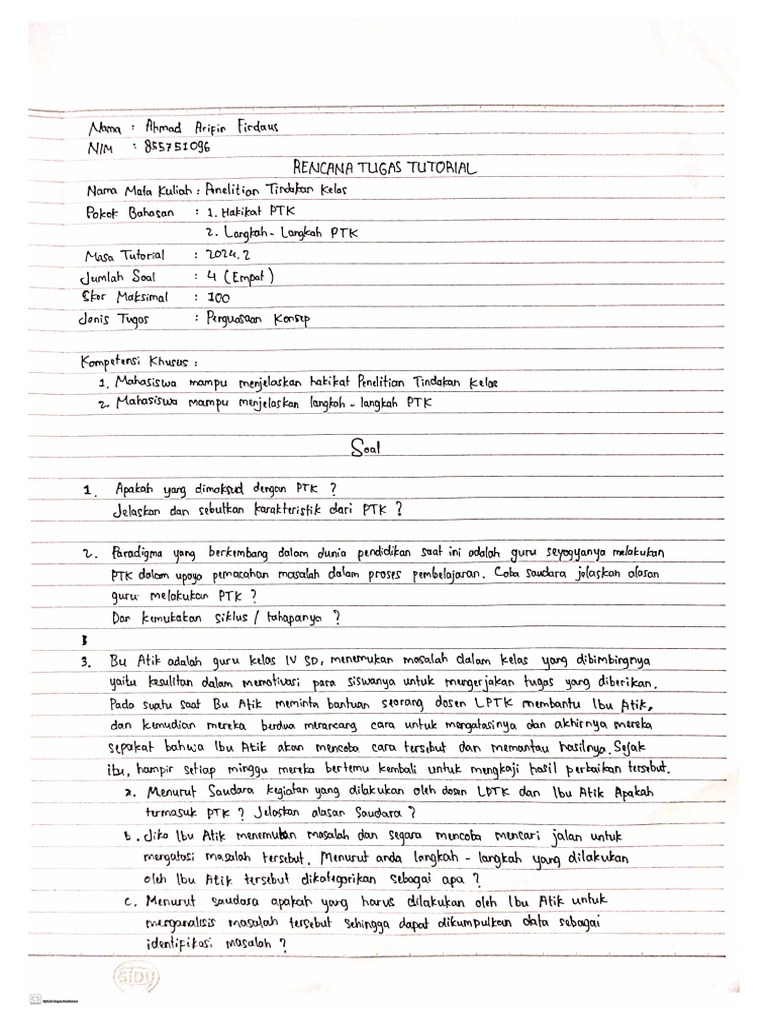 Nama : Ahmad Arifin Firdaus
NIM : 855751096
RENCANA TUGAS TUTORIAL
Nama Mata Kuliah : Penelitian Tindakan Kelas
Pokok Bahasan : 1. Hakikat PTK
2. Langkah - Langkah PTK
Masa Tutorial : 2024.2
Jumlah Soal : 4 (Empat)
Skor Maksimal : 100
Jenis Tugas : Penguasaan Konsep
Kompetensi Khusus :
1. Mahasiswa mampu menjelaskan hakikat Penelitian Tindakan Kelas
2. Mahasiswa mampu menjelaskan langkah - langkah PTK
Soal
1. Apakah yang dimaksud dengan PTK ?
Jelaskan dan sebutkan karakteristik dari PTK ?
2. Paradigma yang berkembang dalam dunia pendidikan saat ini adalah guru seyogyanya melakukan
PTK dalam upaya pemacahan masalah dalam proses pembelajaran. Coba saudara jelaskan alasan
guru melakukan PTK ?
Dan kemukakan siklus / tahapanya ?
3. Bu Atik adalah guru kelas IV SD, menemukan masalah dalam kelas yang dibimbingnya
yaitu kesulitan dalam memotivasi para siswanya untuk mengerjakan tugas yang diberikan.
Pada suatu saat Bu Atik meminta bantuan seorang dosen LPTK membantu Ibu Atik,
dan kemudian mereka berdua merancang cara untuk mengatasinya dan akhirnya mereka
sepakat bahwa Ibu Atik akan mencoba cara tersebut dan memantau hasilnya. Sejak
itu, hampir setiap minggu mereka bertemu kembali untuk mengkaji hasil perbaikan tersebut.
a. Menurut Saudara kegiatan yang dilakukan oleh dosen LPTK dan Ibu Atik Apakah
termasuk PTK ? Jelaskan alasan Saudara ?
b. Jika Ibu Atik menemukan masalah dan segara mencoba mencari jalan untuk
mengatasi masalah tersebut. Menurut anda langkah - langkah yang dilakukan
oleh Ibu Atik tersebut dikategorikan sebagai apa ?
c. Menurut saudara apakah yang harus dilakukan oleh Ibu Atik untuk
menganalisis masalah tersebut sehingga dapat dikumpulkan data sebagai
identifikasi masalah ?
SIDU
CS